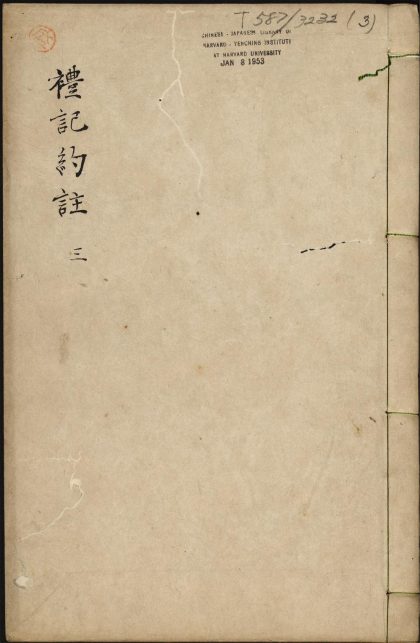 T 587/3232 (3)
CHINESE - JAPANESE LIBRARY OF
HARVARD - YENCHING INSTITUTE
AT HARVARD UNIVERSITY
JAN 8 1953
禮記約註 三